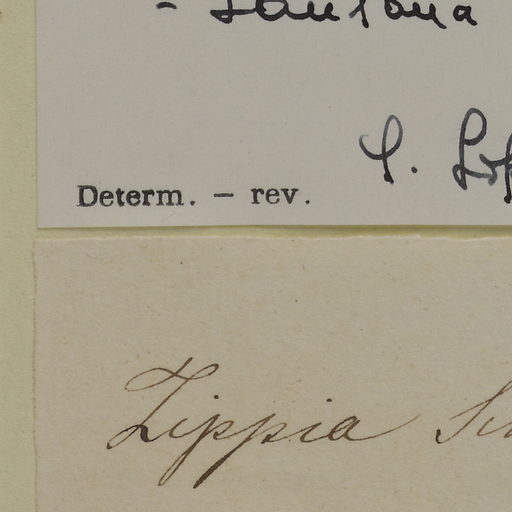 - Lantana
Determ. — rev.
Lippia